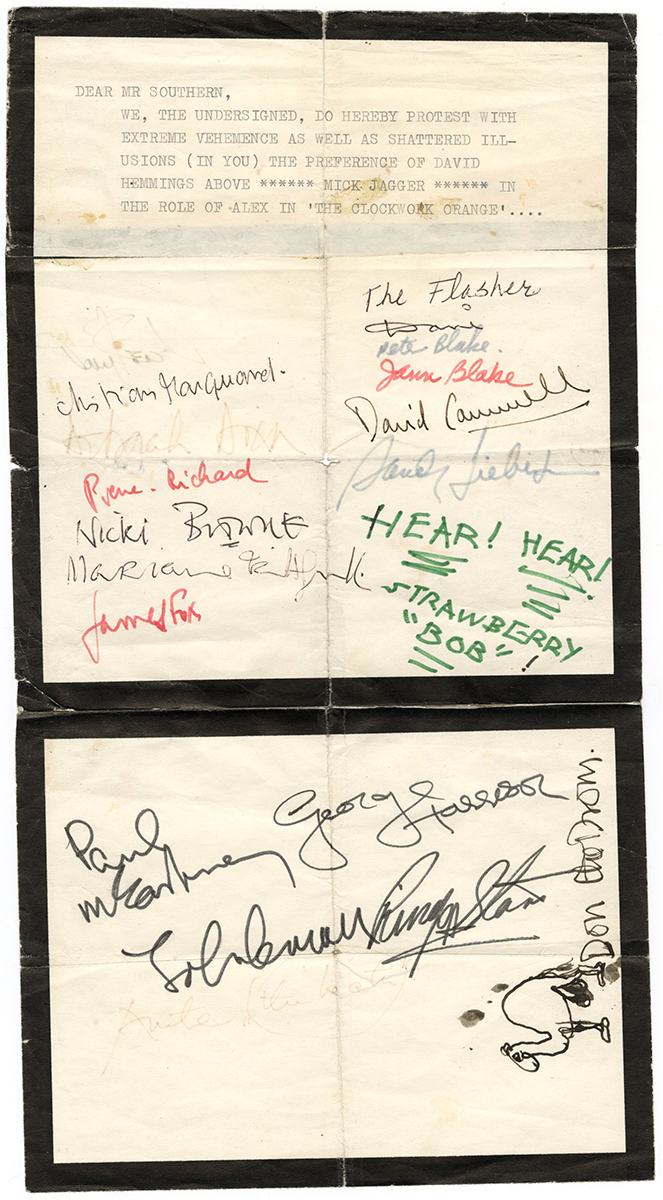 DEAR MR SOUTHERN,
WE, THE UNDERSIGNED, DO HEREBY PROTEST WITH
EXTREME VEHEMENCE AS WELL AS SHATTERED ILL-
USIONS (IN YOU) THE PREFERENCE OF DAVID
HEMMINGS ABOVE ****** MICK JAGGER ****** IN
THE ROLE OF ALEX IN 'THE CLOCKWORK ORANGE'....
Christian Marquand.
Richard
Nicki BROWNE
Marianne Faithfull.
James Fox
The Flasher
Peter Blake.
Jann Blake
David Cammell
Sandy Lieberson
HEAR! HEAR!
STRAWBERRY
"BOB"!
Paul
McCartney
George Harrison
John Lennon
Ringo Starr
Don